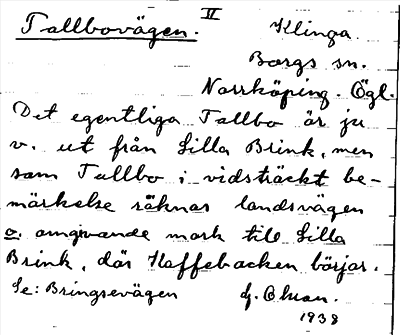 II
Tallbovägen.
Klinga.
Borgs sn.
Norrköping. Ögl.
Det egentliga Tallbo är ju
v. ut från Lilla Brink, men
som Tallbo i vidsträckt be-
märkelse räknas landsvägen
o. omgivande mark till Lilla
Brink, där Kaffebacken börjar.
Se: Bringsevägen
1938